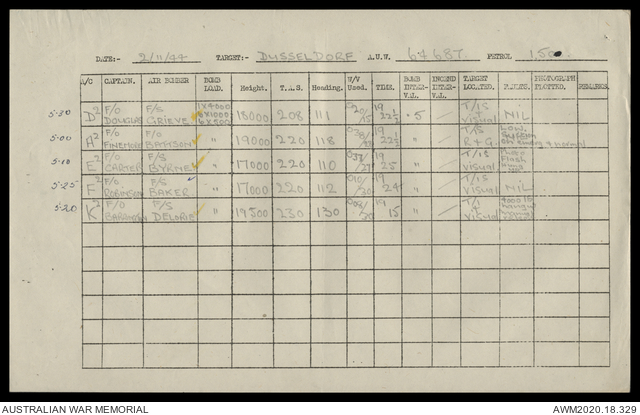 DATE:- 2/11/44 TARGET:- DUSSELDORF A.U.W. 67687. PETROL
A/C CAPTAIN. AIR BOMBER BOMB LOAD. Height. T.A.S. Heading. W/V Used. TIME. BOMB INTER-VAL. INCEND INTER-VAL. TARGET LOCATED. PHOTOGRAPH PLOTTED. REMARKS.
5-50 D² F/O DOUGLAS F/S GRIEVE 1X4000 6X1000 6X500 18000 208 111 19 22½ .5 T/IS VISUAL NIL
5-00 A² F/O F/S BATTISON " 19000 220 118 19 22½ " T/IS R+G
5-10 E² F/O CARTER F/S BYRNE " 17000 220 110 19 25 " VISUAL Flash
5-25 F² F/O ROBINSON F/S BAKER " 17000 220 112 19 24 " T/IS VISUAL NIL
5-20 K² F/O F/S " 19500 230 130 19 15 " VISUAL
AUSTRALIAN WAR MEMORIAL AWM2020.18.329